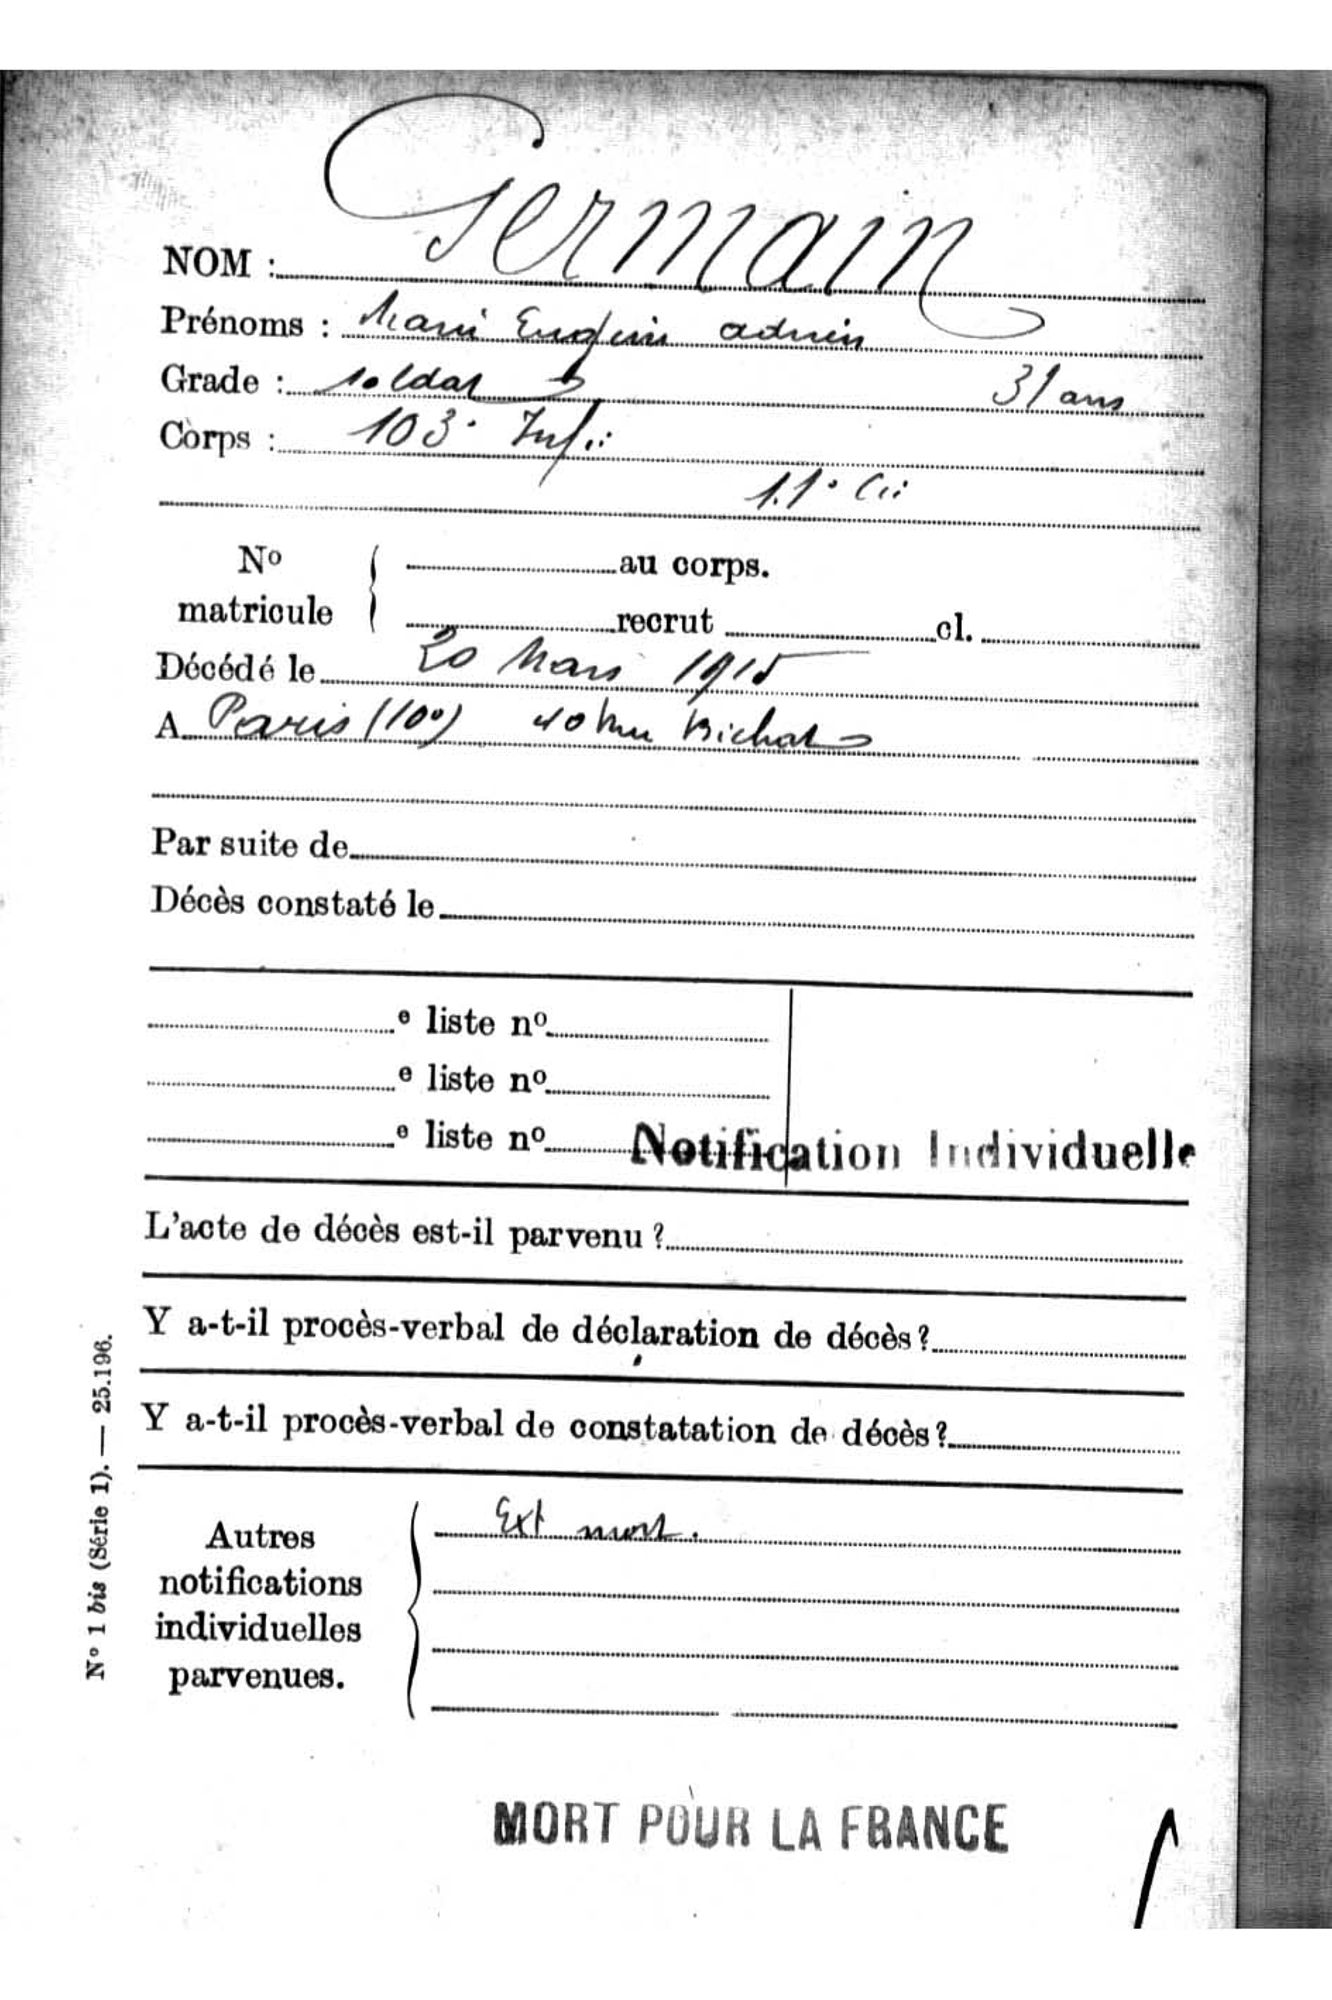 Germain
NOM :
Prénoms : Marie Eugène adrien
Grade : soldat 31 ans
Corps : 103e Infie
11e Cie
No matricule
au corps.
recrut cl.
Décédé le 20 Mars 1915
A Paris (10e) 40 rue Bichat
Par suite de
Décès constaté le
e liste no
e liste no
e liste no
Notification Individuelle
L'acte de décès est-il parvenu ?
Y a-t-il procès-verbal de déclaration de décès ?
Y a-t-il procès-verbal de constatation de décès ?
Autres
notifications
individuelles
parvenues.
Ext mort.
MORT POUR LA FRANCE
No 1 bis (Série 1). — 25.196.